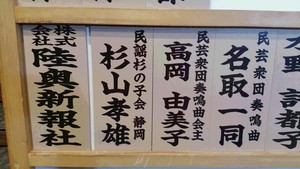 民芸衆団奏鳴曲
名取一同
民芸衆団奏鳴曲会主
高岡由美子
民謡杉の子会 静岡
杉山孝雄
株式会社
陸奥新報社